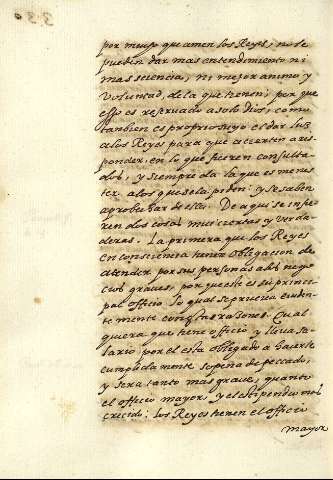 por mucho que amen los Reyes, no se
pueden dar mas entendimiento ni
mas sciencia, ni mejor animo y
voluntad, de la que tienen; por que
esso es reservado a solo Dios, como
tambien es proprio suyo el dar luz
a los Reyes para que acierten a res
ponder, en lo que fueren consulta
dos, y siempre da la que es menes
ter a los que se la piden: y se saben
aprobechar de ella. De aqui se infie
ren dos cosas muy ciertas y verda
deras. La primera que los Reyes
en consciencia tienen obligacion de
atender por sus personas a los nego
cios graves, porque este es su princi
pal officio. Lo qual se prueva eviden
temente con esta razon. Qual
quiera que tiene officio y lleva sa
lario por el esta obligado a hacerle
cumplidamente so pena de peccado,
y sera tanto mas grave, quanto
el officio mayor, y el estipendio mas
crecido: los Reyes tienen el officio
mayor